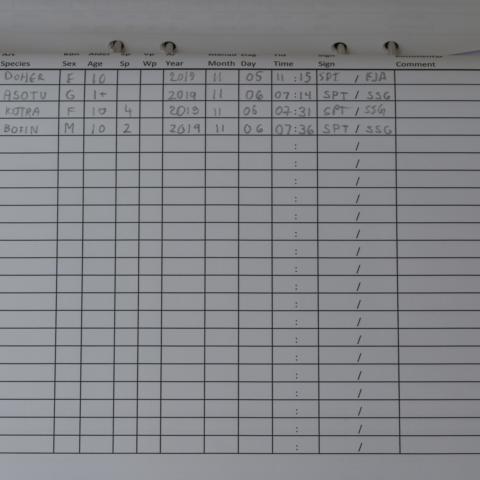 Species Sex Age Sp Wp Year Month Day Time Sign Comment
DOHER F 10 2019 11 05 11:15 SPT / FJA
ASOTU G 1+ 2019 11 06 07:14 SPT / SSG
KOTRA F 10 4 2019 11 06 07:31 SPT / SSG
BOFIN M 10 2 2019 11 06 07:36 SPT / SSG
: /
: /
: /
: /
: /
: /
: /
: /
: /
: /
: /
: /
: /
: /
: /
: /
: /
: /